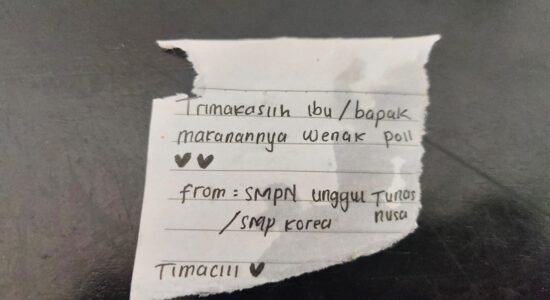 Trimakasiih ibu/bapak
makanannya wenak poll
♥♥
from: SMPN unggul Tunas
nusa
/SMP Korea
Timaciii ♥